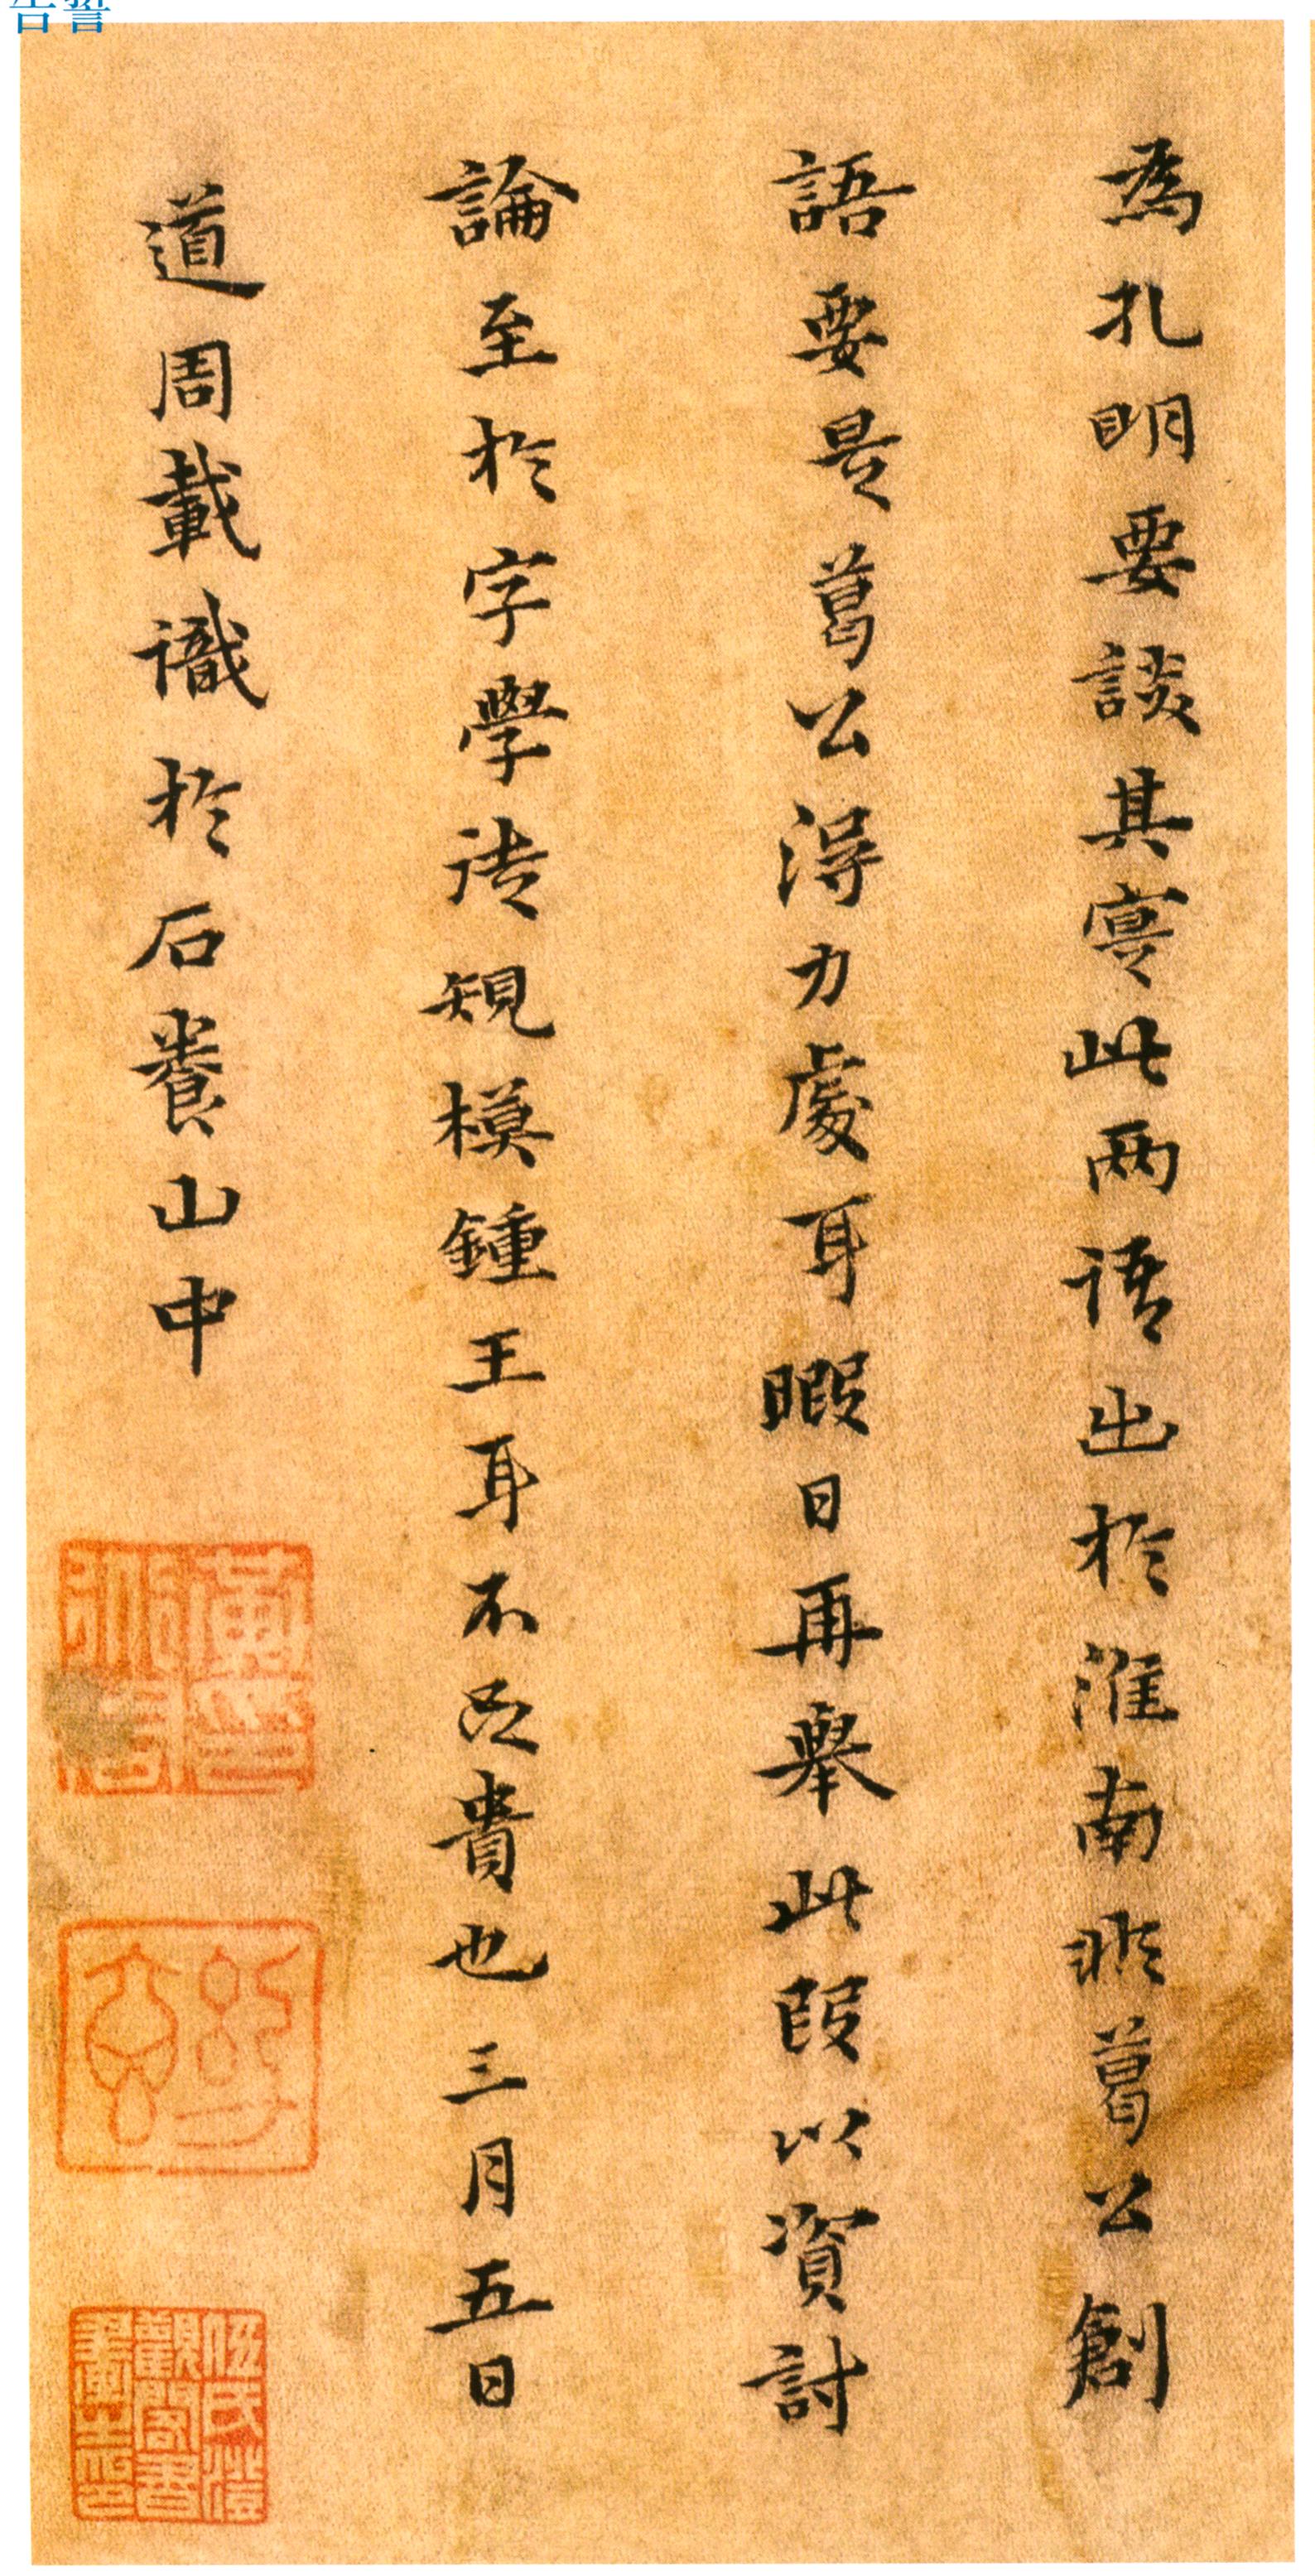 為孔明要談其寔此兩語出於淮南非葛公創
語要是葛公得力處耳暇日再舉此段以資討
論至於字學法規模鍾王耳不足貴也三月五日
道周載識於石養山中
黃道周印
幼玄